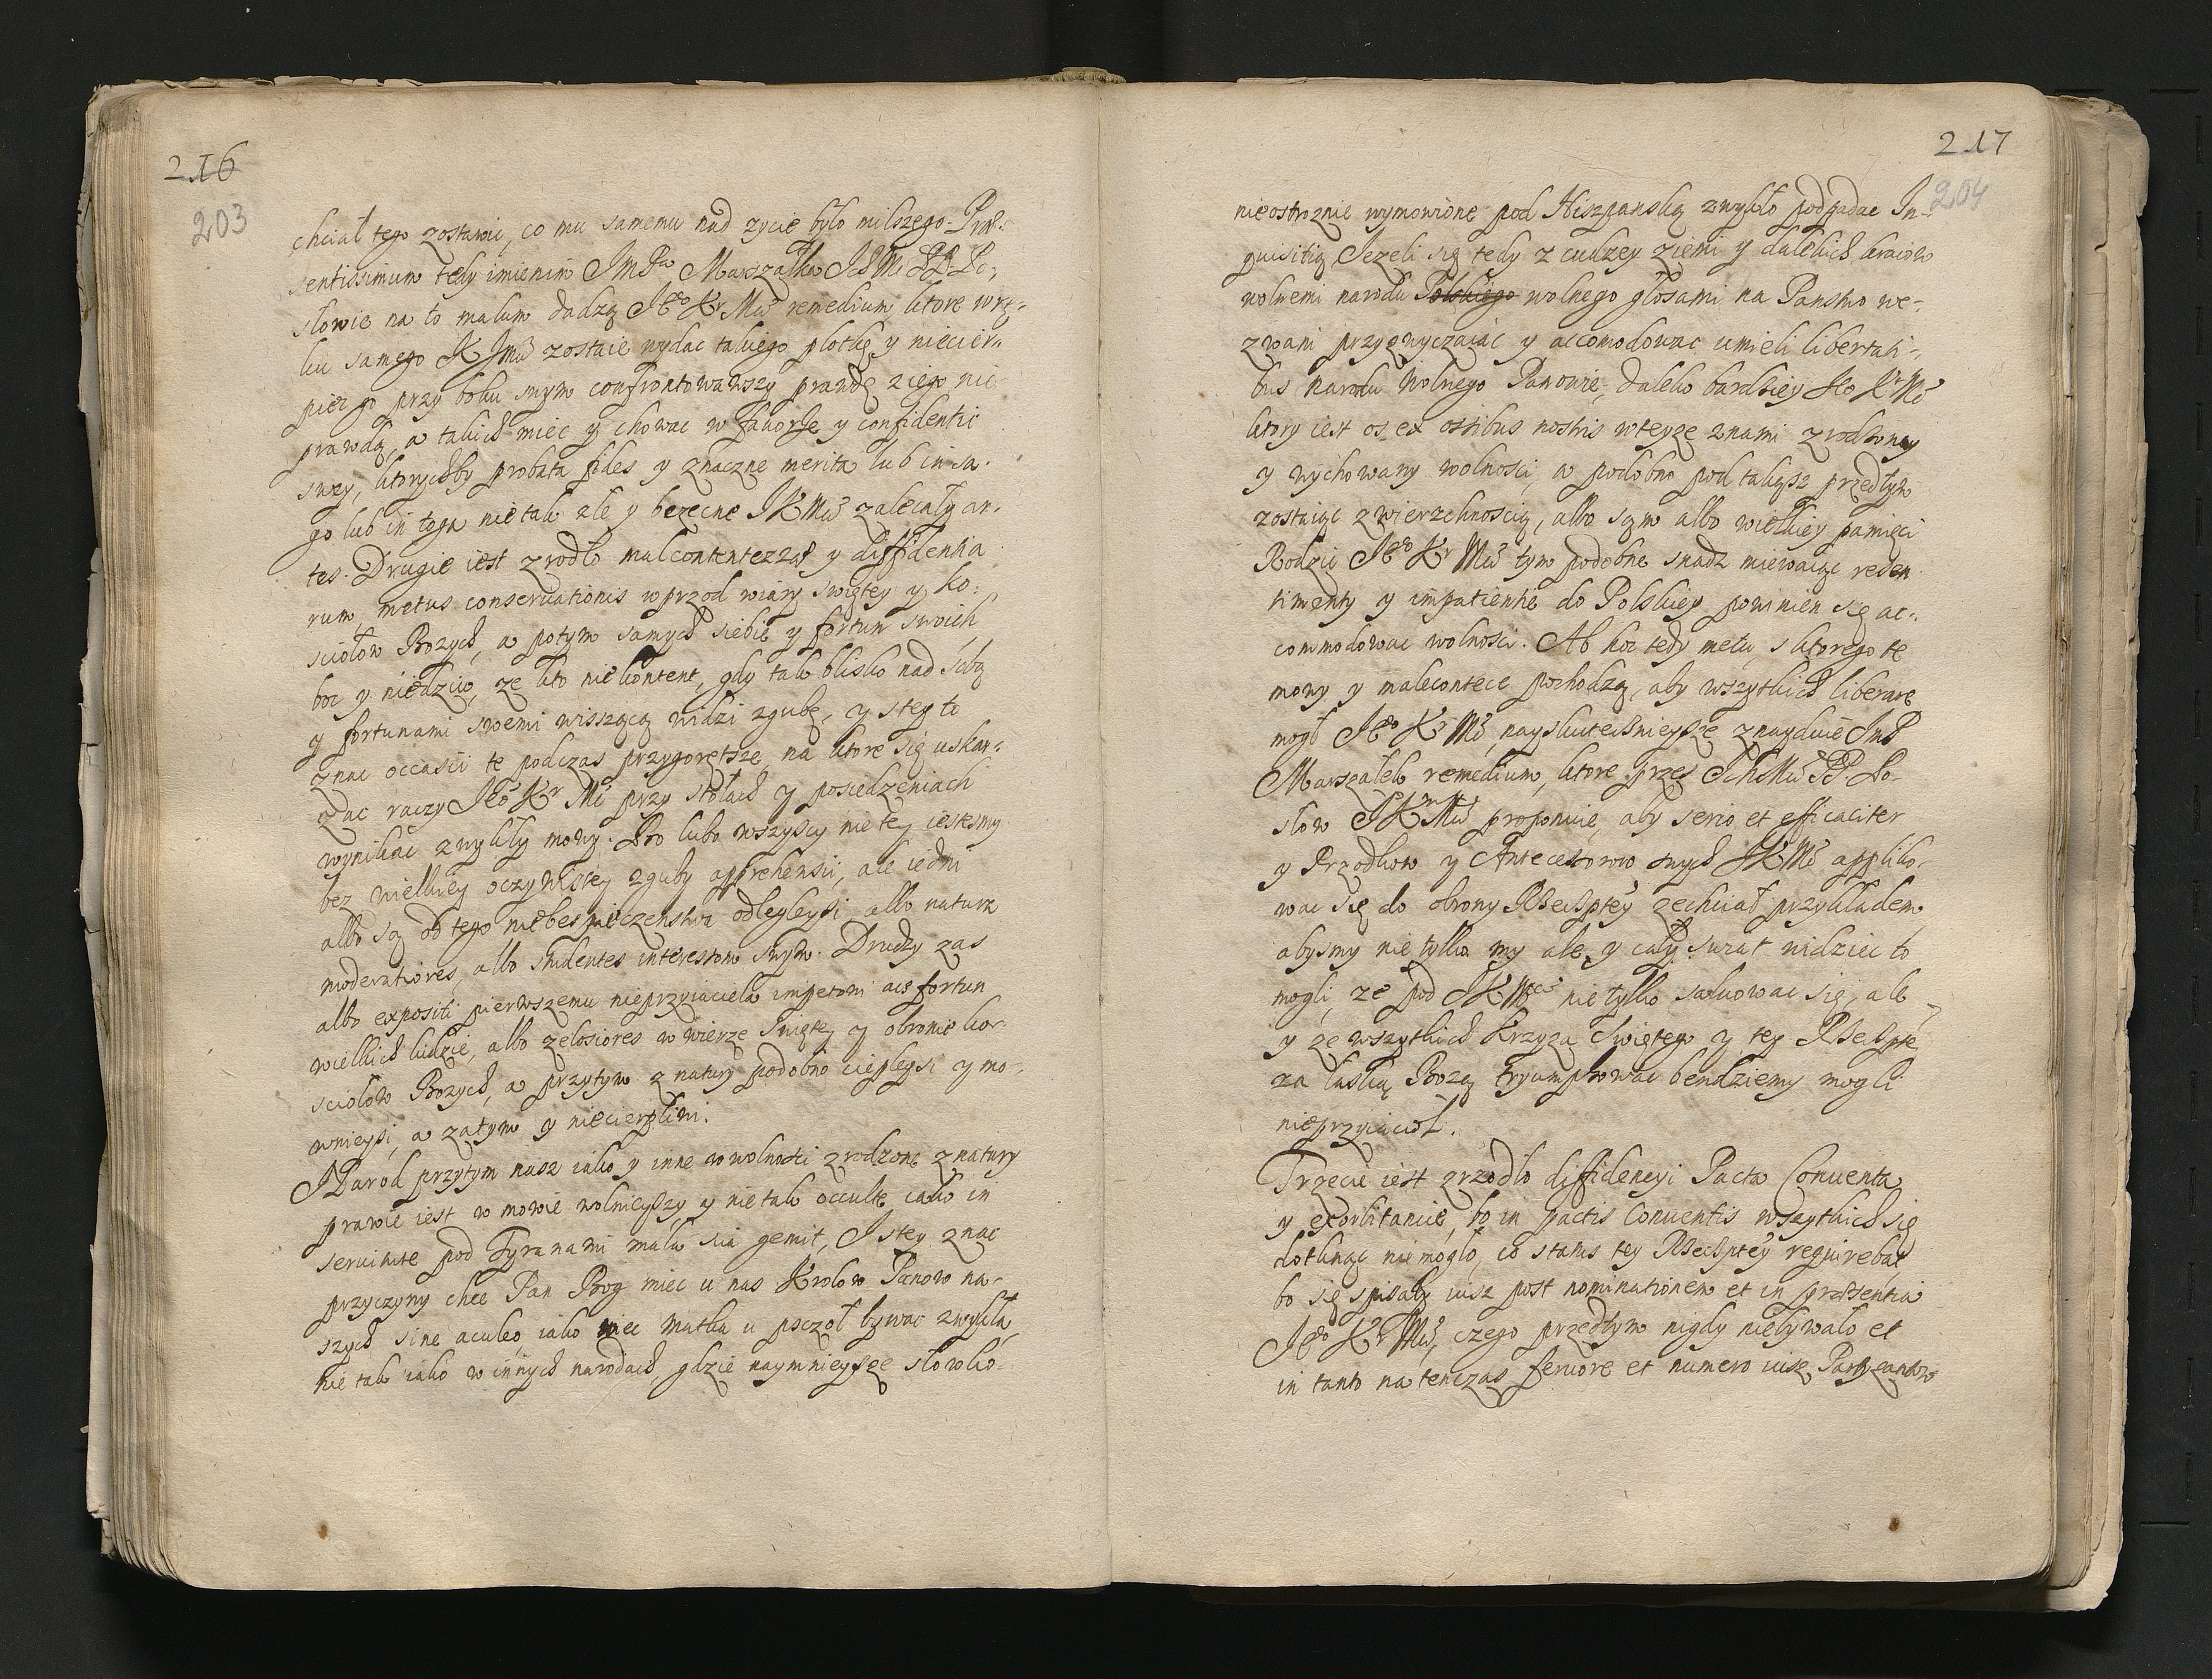 216
203
chciał tego zostawic, co mu samemu nad zycie było milszego. Præ-
sentissimum tedy imieniem JmPa Marszałka IchM PP Po-
słowie na to malum dadzą JKo Kr Mci remedium, ktore w rę-
ku samego K Jmci zostaie wydac takiego plotkę y niecier-
piec go przy boku swym confrontowawszy prawdę z iego nie
prawdą, a takich miec y chowac w faworze y confidentii
swey, ktorychby probata fides y znaczne merita lub in sa-
go lub in toga nie tak zle y bezecne JKMci zalecały ar-
tes. Drugie iest zrodło malcontentezzas y diffidentia
rum, metus conservationis wprzod wiary swiętey y ko-
sciołow Bozych, a potym samych siebie y fortun swoich
boc y niedziw, ze kto niekontent, gdy tak blisko nad sobą
y fortunami swemi wisszącą widzi zgubę, y stey to
znac occasii te podczas przygorętsze, na ktore się uskar-
zac raczy JKo Kr Mc przy stołach y posiedzeniach
wynikac zwykły mowy. Bo lubo wszyscy nie tey iestesmy
bez wielkiey oczywistey zguby apprehensii, ale iedni
albo są od tego niebespieczenstwa odlegleysi albo natura
moderatiores, albo studentes interessom swym. Drudzy zas
albo expositi pierwszemu nieprzyiaciela impetowi acz fortun
wielkich ludzie, albo zelosiores w wierze swiętey y obronie kor
sciołow Bozych, a przytym z natury podobno cieplejsi y mo-
wnieysi, a zatym y niecierpliwi.
Narod przytym nasz iako y inne w wolnosci zrodzone z natury
prawie iest w mowie wolnieyszy y nie tak occulte iako in
servitute pod Tyranami mala sua gemit, I stey znac
przyczyny chce Pan Bog miec u nas Krolow Panow na-
szych sine aculeo iako wiec Matka u psczoł bywac zwykła,
nie tak iako w innych narodach, gdzie naymnieysze słowko
217
204
nieostroznie wymowione pod Hiszpanską zwykło podpadac In-
quisitią. Jezeli się tedy z cudzey ziemi y dalekich kraiow
wolnemi narodu Polskiego wolnego głosami na Panstwo we-
zwani przyzwyczaiac y accomodowac umieli libertati-
bus narodu wolnego Panowie, daleko bardziey JKo Kr Mc
ktory iest os ex ossibus nostris w teyze z nami zrodzony
y wychowany wolnosci, a podobno pod takąsz przedtym
zostaiąc zwierzchnoscią, albo sam albo wielkiey pamięci
Rodzic JKo Kr Mci tym podobne snadz miewaiąc resen
timenty y impatientie do Polskiey powinien się ac-
commodowac wolnosci. Ab hoc tedy metu, s ktorego te
mowy y malecontece pochodzą, aby wszytkich liberare
mogł JKo Kr Mc, nayskutecznieysze znayduie JmP
Marszałek remedium, ktore przez IchMci PP. Po-
słow JKrMci proponuie, aby serio et efficaciter
y Przodkow y Antecessorow swych JKMc appliko-
wac się do obrony Rzeczptey zechciał przykładem,
abysmy nie tylko my ale y cały swiat widziec to
mogli, ze pod JKMcią nie tylko salwowac się, ale
y ze wszytkich Krzyza Swiętego y tey Rzeczpte
za łaską Bozą tryumphowac bendziemy mogli
nieprzyiacioł.
Trzecie iest zrzodło diffidencyi Pacta Conventa
y exorbitancie, bo in pactis Conventis wszytkich się
dotknąc nie mogło, co status tey Rzeczptey requirebat
bo się spisały iusz post nominationem et in præsentia
JKo Kr Mci, czego przedtym nigdy nie bywało et
in tanto na tenczas fervore et numero iusz Partyzantow